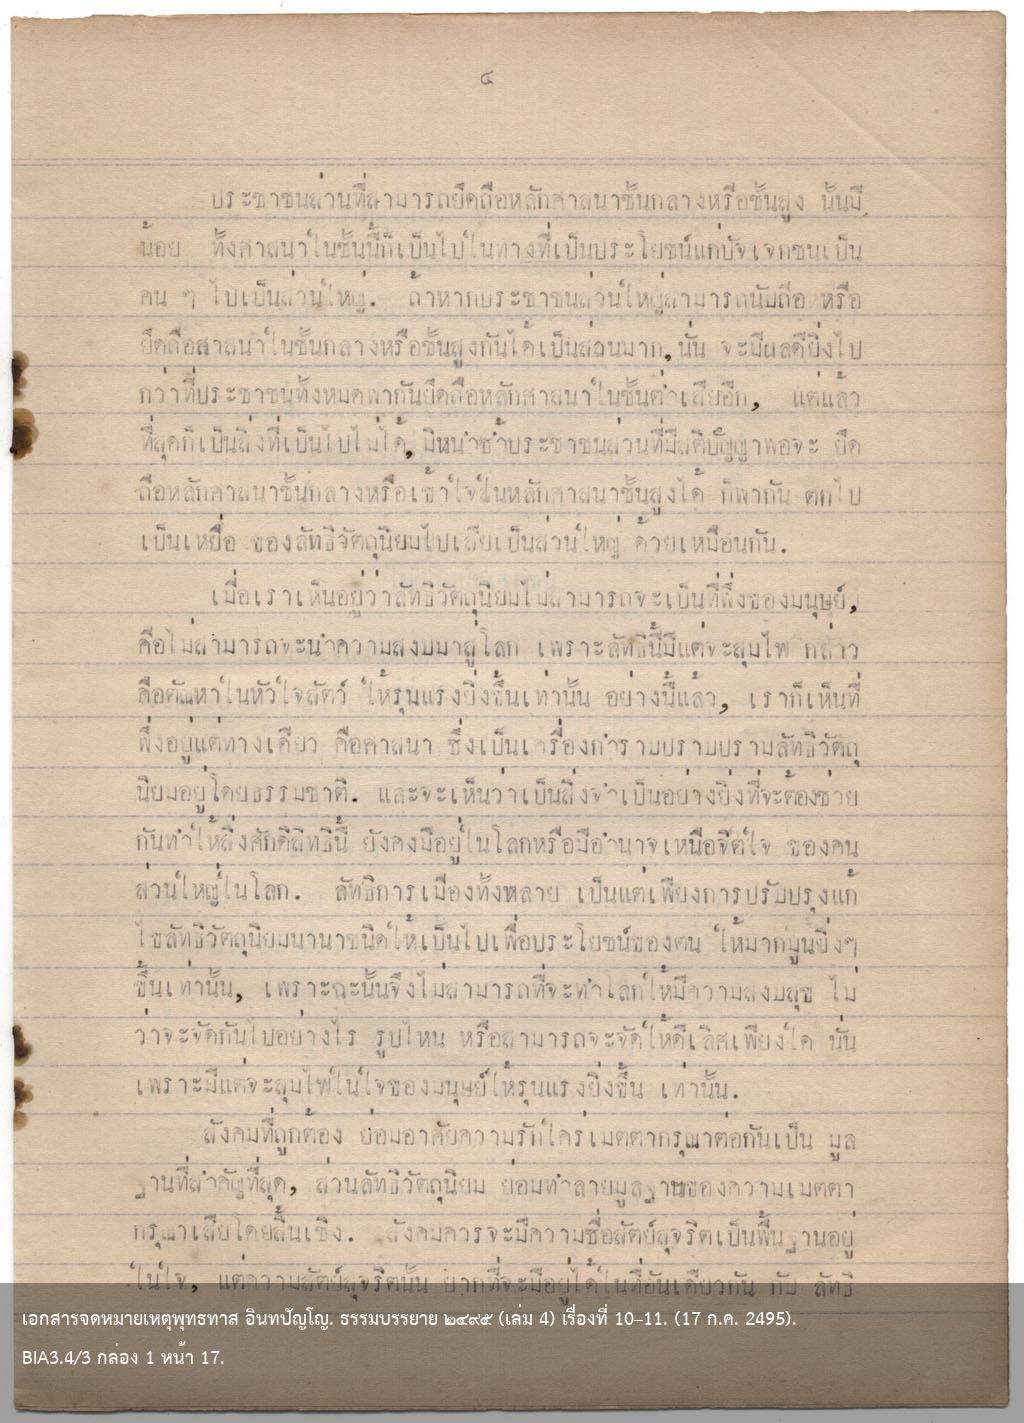 ๔
ประชาชนส่วนที่สามารถยึดถือหลักศาสนาชั้นกลางหรือชั้นสูง นั้นมี
น้อย ทั้งศาสนาในชั้นนี้ก็เป็นไปในทางที่เป็นประโยชน์แก่ปัจเจกชนเป็น
คน ๆ ไปเป็นส่วนใหญ่. ถ้าหากประชาชนส่วนใหญ่สามารถนับถือ หรือ
ยึดถือสาสนาในชั้นกลางหรือชั้นสูงกันได้เป็นส่วนมาก,นั่น จะมีผลดียิ่งไป
กว่าที่ประชาชนทั้งหมดพากันยึดถือหลักศาสนาในชั้นต่ำเสียอีก, แต่แล้ว
ที่สุดก็เป็นสิ่งที่เป็นไปไม่ได้,มิหนำซ้ำประชาชนส่วนที่มีสติปัญญาพอจะ ยึด
ถือหลักศาสนาชั้นกลางหรือเข้าใจในหลักศาสนาชั้นสูงได้ ก็พากัน ตกไป
เป็นเหยื่อ ของลัทธิวัตถุนิยมไปเสียเป็นส่วนใหญ่ ด้วยเหมือนกัน.
เมื่อเราเห็นอยู่ว่าลัทธิวัตถุนิยมไม่สามารถจะเป็นที่พึ่งของมนุษย์,
คือไม่สามารถจะนำความสงบมาสู่โลก เพราะลัทธินี้มีแต่จะสุมไฟ กล่าว
คือตัณหาในหัวใจสัตว์ ให้รุนแรงยิ่งขึ้นเท่านั้น อย่างนี้แล้ว, เราก็เห็นที่
พึ่งอยู่แต่ทางเดียว คือศาสนา ซึ่งเป็นเครื่องกำราบปราบปรามลัทธิวัตถุ
นิยมอยู่โดยธรรมชาติ. และจะเห็นว่าเป็นสิ่งจำเป็นอย่างยิ่งที่จะต้องช่วย
กันทำให้สิ่งศักดิ์สิทธินี้ ยังคงมีอยู่ในโลกหรือมีอำนาจเหนือจิตใจ ของคน
ส่วนใหญ่ในโลก. ลัทธิการเมืองทั้งหลาย เป็นแต่เพียงการปรับปรุงแก้
ไขลัทธิวัตถุนิยมนานาชนิดให้เป็นไปเพื่อประโยชน์ของตน ให้มากมูนยิ่งๆ
ขึ้นเท่านั้น, เพราะฉะนั้นจึงไม่สามารถที่จะทำโลกให้มีความสงบสุข ไม่
ว่าจะจัดกันไปอย่างไร รูปไหน หรือสามารถจะจัดให้ดีเลิศเพียงใด นั่น
เพราะมีแต่จะสุมไฟในใจของมนุษย์ให้รุนแรงยิ่งขึ้น เท่านั้น.
สังคมที่ถูกต้อง ย่อมอาศัยความรักใคร่เมตตากรุณาต่อกันเป็น มูล
ฐานที่สำคัญที่สุด, ส่วนลัทธิวัตถุนิยม ย่อมทำลายมูลฐานของความเมตตา
กรุณาเสียโดยสิ้นเชิง. สังคมควรจะมีความซื่อสัตย์สุจริตเป็นพื้นฐานอยู่
ในใจ, แต่ความสัตย์สุจริตนั้น ยากที่จะมีอยู่ได้ในที่อันเดียวกัน กับ ลัทธิ
เอกสารจดหมายเหตุพุทธทาส อินทปัญโญ. ธรรมบรรยาย ๒๔๙๕ (เล่ม 4) เรื่องที่ 10–11. (17 ก.ค. 2495).
BIA3.4/3 กล่อง 1 หน้า 17.